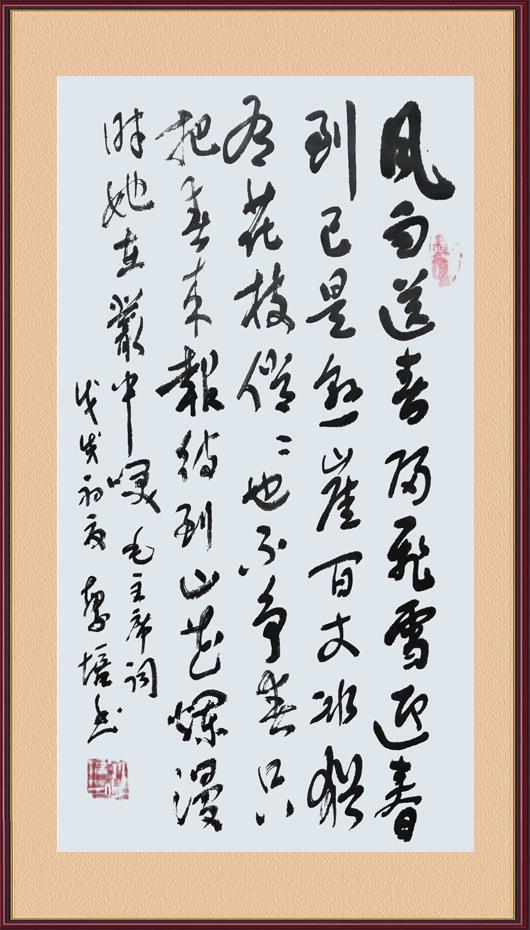 風雨送春歸飛雪迎春
到已是懸崖百丈冰猶
有花枝俏〻也不争春只
把春来報待到山花爛漫
時她在叢中笑 毛主席詞
戊戌初夏 培书